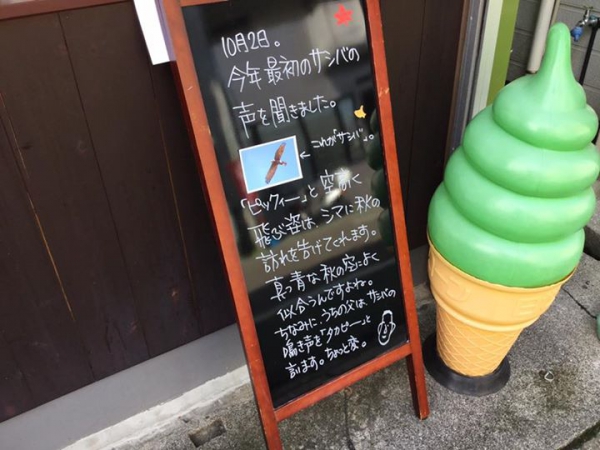 10月2日。
今年最初のサシバの
声を聞きました。
←これが「サシバ」。
「ピックィー」と空高く
飛ぶ姿は、シマに秋の
訪れを告げてくれます。
真っ青な秋の空によく
似合うんですよね。
ちなみに、うちの父はサシバの
鳴き声を「タカピー」と
言います。ちょっと変。